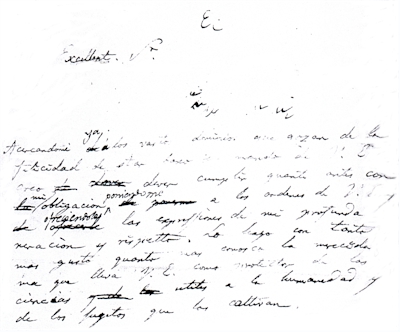 Excellent. Sr.
Acercandome ya a los vasto dominios que gozan de la
felicidad de estar bajo el mando de V. E.
creo deber cumplir quanto antes con
mi obligacion poniendome a las ordenes de V. E. y
ofreciendole las expresiones de mi profunda
veneracion y respetto. Lo hago con tanto
mas gusto quanto mas conosco la
ma que lleva V. E. como protector de las
ciencias utiles a la humanidad y
de los sugetos que las cultivan.